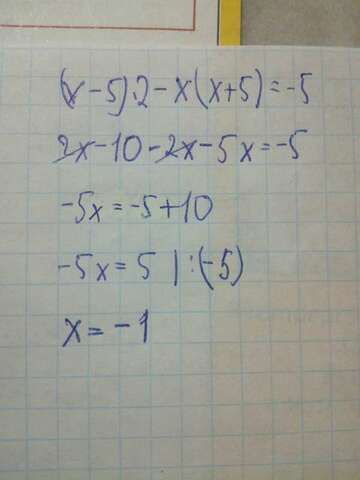 (x-5)·2-x(x+5)=-5
2x-10-2x-5x=-5
-5x=-5+10
-5x=5 |:(-5)
x=-1